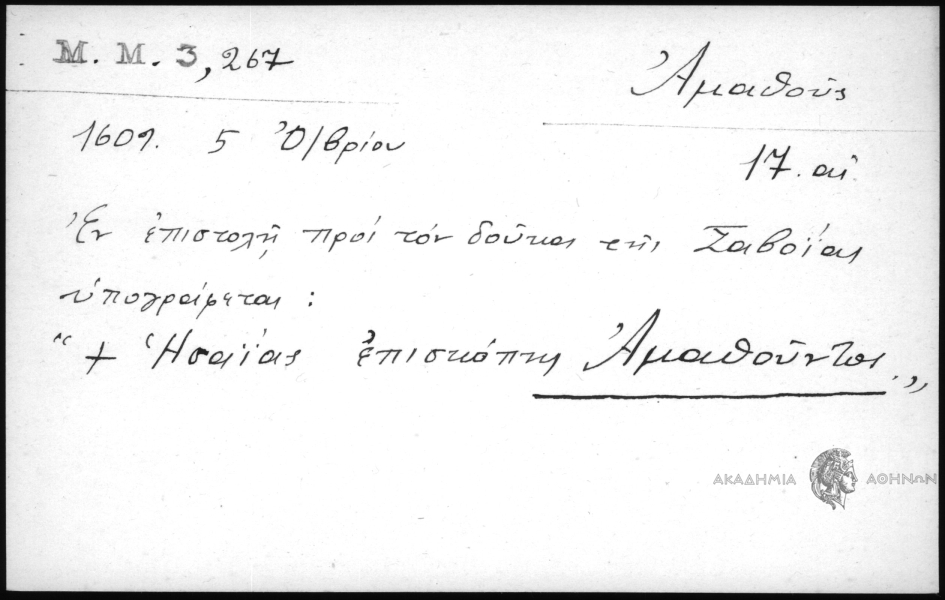 Μ. Μ. 3, 267
Ἀμαθοῦς
1609. 5 Ὀ/βρίου
17. αἰ
Ἐν ἐπιστολῇ πρός τόν δοῦκα τῆς Σαβοΐας
ὑπογράφεται :
“ + Ἡσαΐας ἐπισκόπης Ἀμαθοῦντος.”
ΑΚΑΔΗΜΙΑ ΑΘΗΝΩΝ